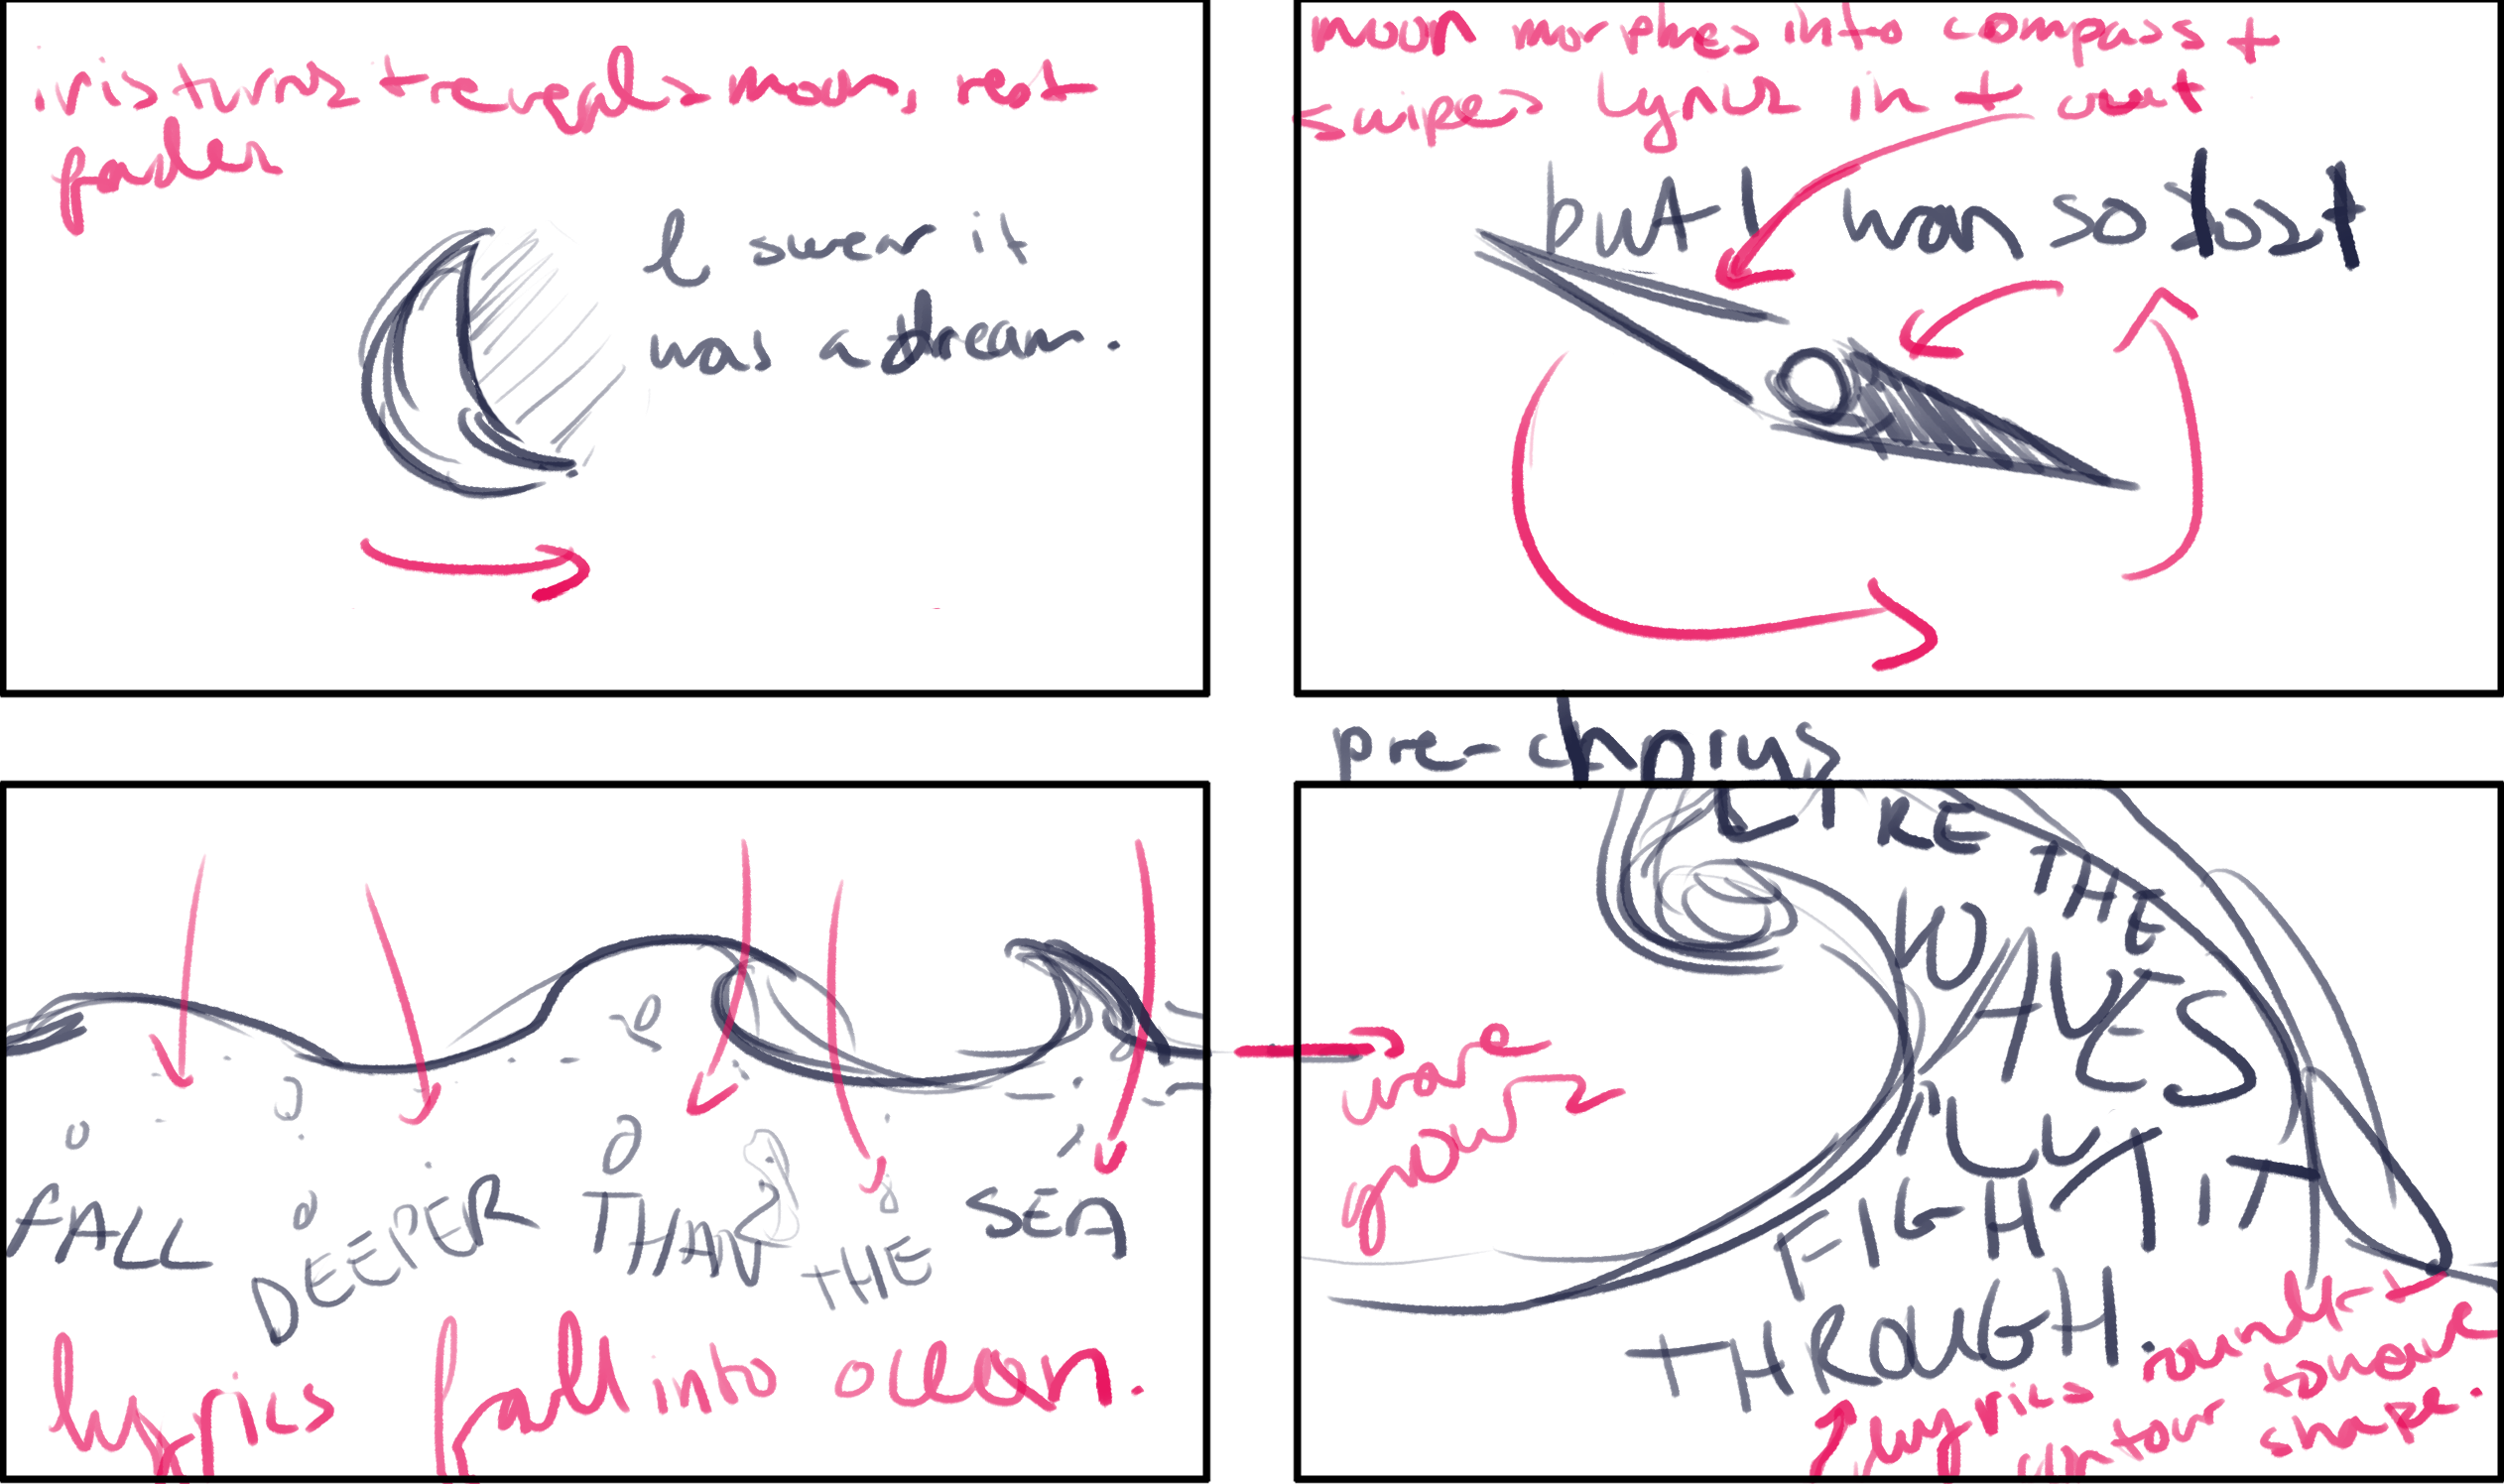 iris turns + reveals moon, rest
fades
I swear it
was a dream.
moon morphes into compass +
swipes lyrics in + out
but I was so lost
FALL DEEPER THAN THE SEA
lyrics fall into ocean.
pre-chorus
LIKE THE
WAVES
I'LL
FIGHT IT
THROUGH.
wave
grows
lyrics
contour to wave
shape.